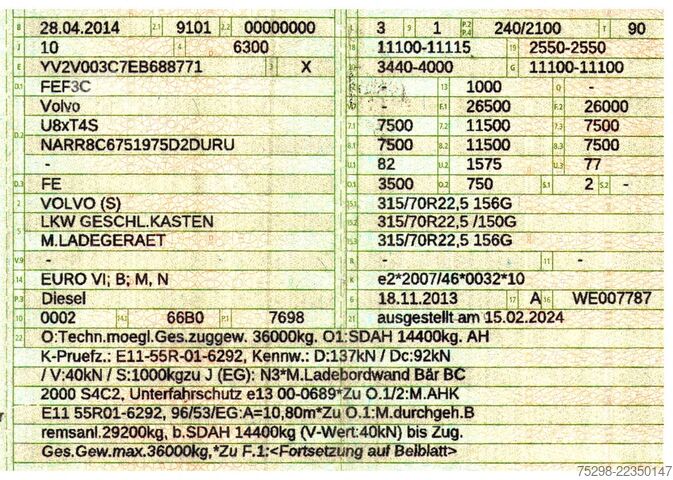 B 28.04.2014 2.1 9101 2.2 00000000
J 10 4 6300
E YV2V003C7EB688771 3 X
D.1 FEF3C
Volvo
D.2 U8xT4S
NARR8C6751975D2DURU
-
D.3 FE
2 VOLVO (S)
5 LKW GESCHL.KASTEN
M.LADEGERAET
V.9 -
14 EURO VI; B; M, N
P.3 Diesel
10 0002 14.1 66B0 P.1 7698
3 9 1 P.2 P.4 240/2100 T 90
18 11100-11115 19 2550-2550
20 3440-4000 G 11100-11100
- 13 1000 Q -
- F.1 26500 F.2 26000
7.1 7500 7.2 11500 7.3 7500
8.1 7500 8.2 11500 8.3 7500
U.1 82 U.2 1575 U.3 77
O.1 3500 O.2 750 S.1 2 S.2 -
15.1 315/70R22,5 156G
15.2 315/70R22,5 /150G
15.3 315/70R22,5 156G
R - 11 -
K e2*2007/46*0032*10
6 18.11.2013 17 A 16 WE007787
21 ausgestellt am 15.02.2024
22 O:Techn.moegl.Ges.zuggew. 36000kg. O1:SDAH 14400kg. AH
K-Pruefz.: E11-55R-01-6292, Kennw.: D:137kN / Dc:92kN
/ V:40kN / S:1000kgzu J (EG): N3*M.Ladebordwand Bär BC
2000 S4C2, Unterfahrschutz e13 00-0689*Zu O.1/2:M.AHK
E11 55R01-6292, 96/53/EG:A=10,80m*Zu O.1:M.durchgeh.B
remsanl.29200kg, b.SDAH 14400kg (V-Wert:40kN) bis Zug.
Ges.Gew.max.36000kg,*Zu F.1:<Fortsetzung auf Beiblatt>
75298-22350147